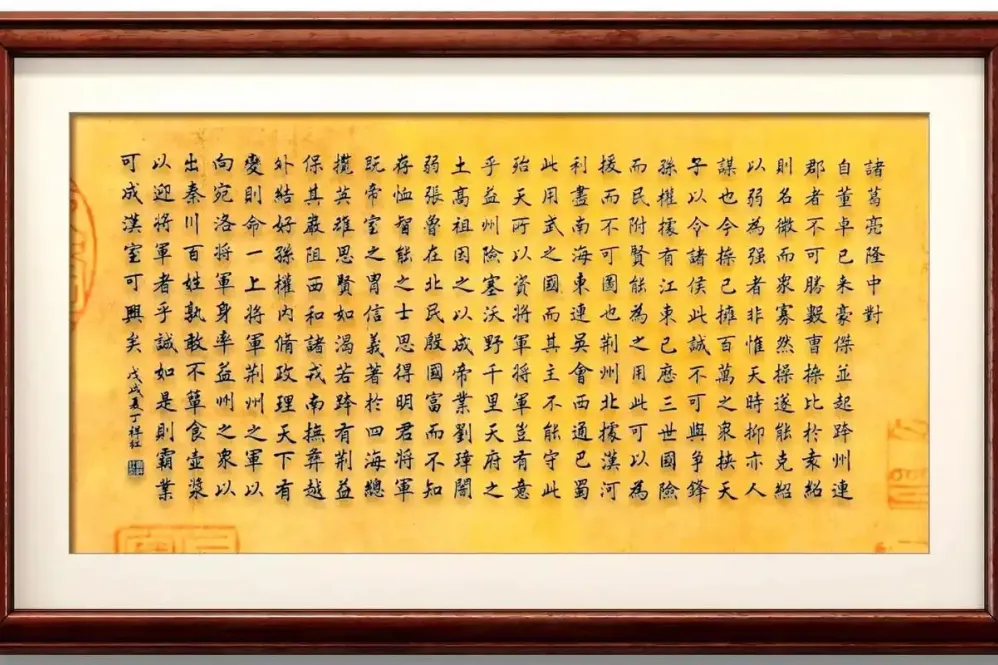 諸葛亮隆中對
自董卓已来豪傑並起跨州連
郡者不可勝數曹操比於袁紹
則名微而衆寡然操遂能克紹
以弱為强者非惟天時抑亦人
謀也今操已擁百萬之衆挾天
子以令諸侯此誠不可與争鋒
孫權據有江東已歷三世國險
而民附賢能為之用此可以為
援而不可圖也荆州北據漢河
利盡南海東連吳會西通巴蜀
此用武之國而其主不能守此
殆天所以資將軍將軍豈有意
乎益州險塞沃野千里天府之
土高祖因之以成帝業劉璋闇
弱張魯在北民殷國富而不知
存恤智能之士思得明君將軍
既帝室之胄信義著於四海總
攬英雄思賢如渴若跨有荆益
保其巖阻西和諸戎南撫彝越
外結好孫權内脩政理天下有
變則命一上將軍荆州之軍以
向宛洛將軍身率益州之衆以
出秦川百姓孰敢不簞食壺漿
以迎將軍者乎誠如是則霸業
可成漢室可興矣
戊戌夏丁祥红